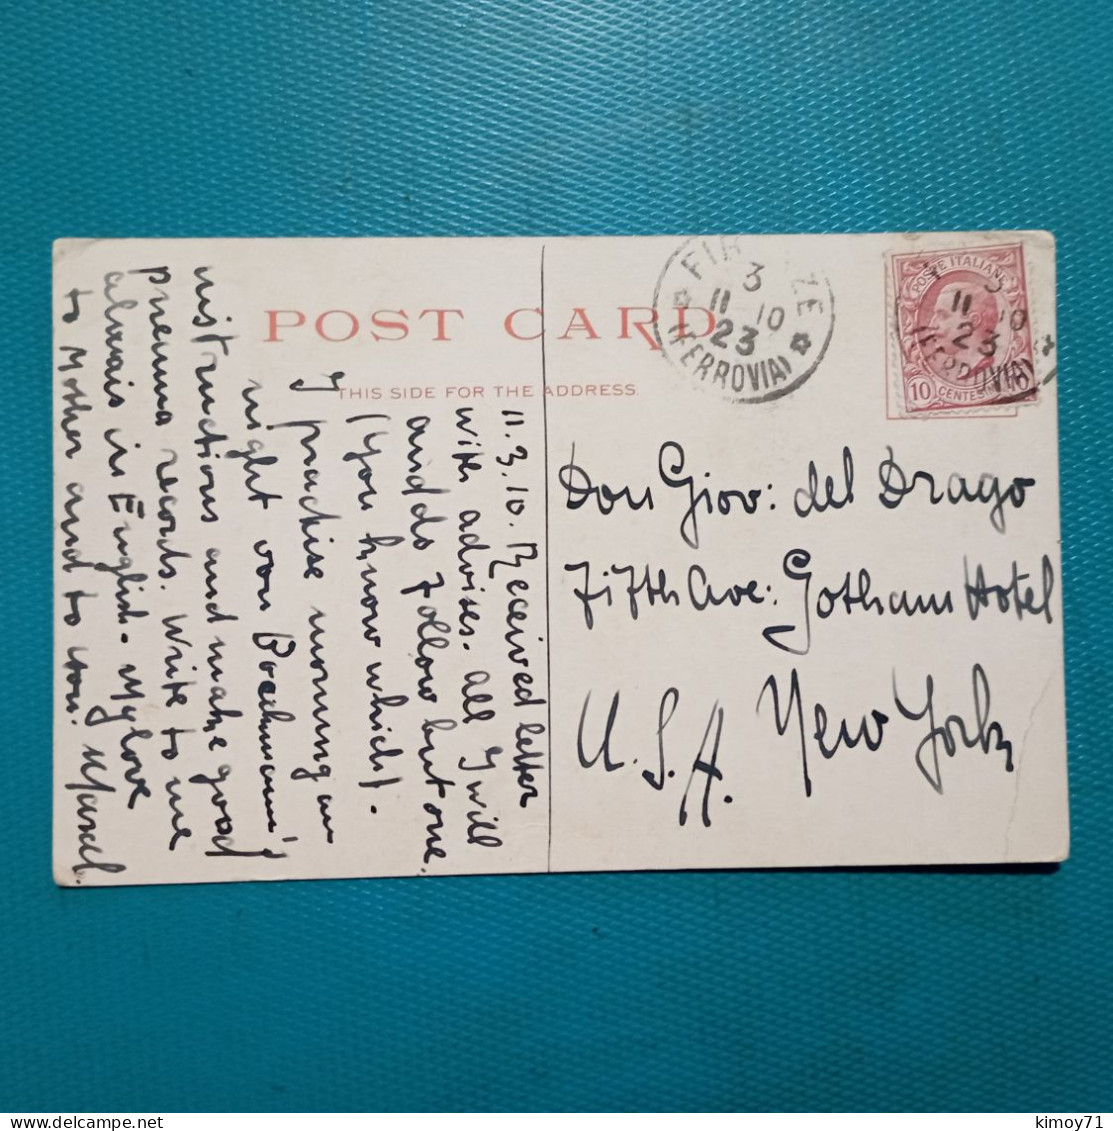 POST CARD
THIS SIDE FOR THE ADDRESS.
FIR ZE
3
11 10
23
(FERROVIA)
POSTE ITALIANE
10
CENTESIMI
3
11 10
23
(FERROVIA)
11.3.10. Received letter
with advises. All I will
and do follow but one.
(you know which).
I practise morning an
night von Boehmann's
nistructions and make good
premna recods. Write to me
alwais in English. My love
to Mother and to you. Marcel.
Don Giov: del Drago
Fifth Ave: Gotham Hotel
New York
U.S.A.
kimoy71